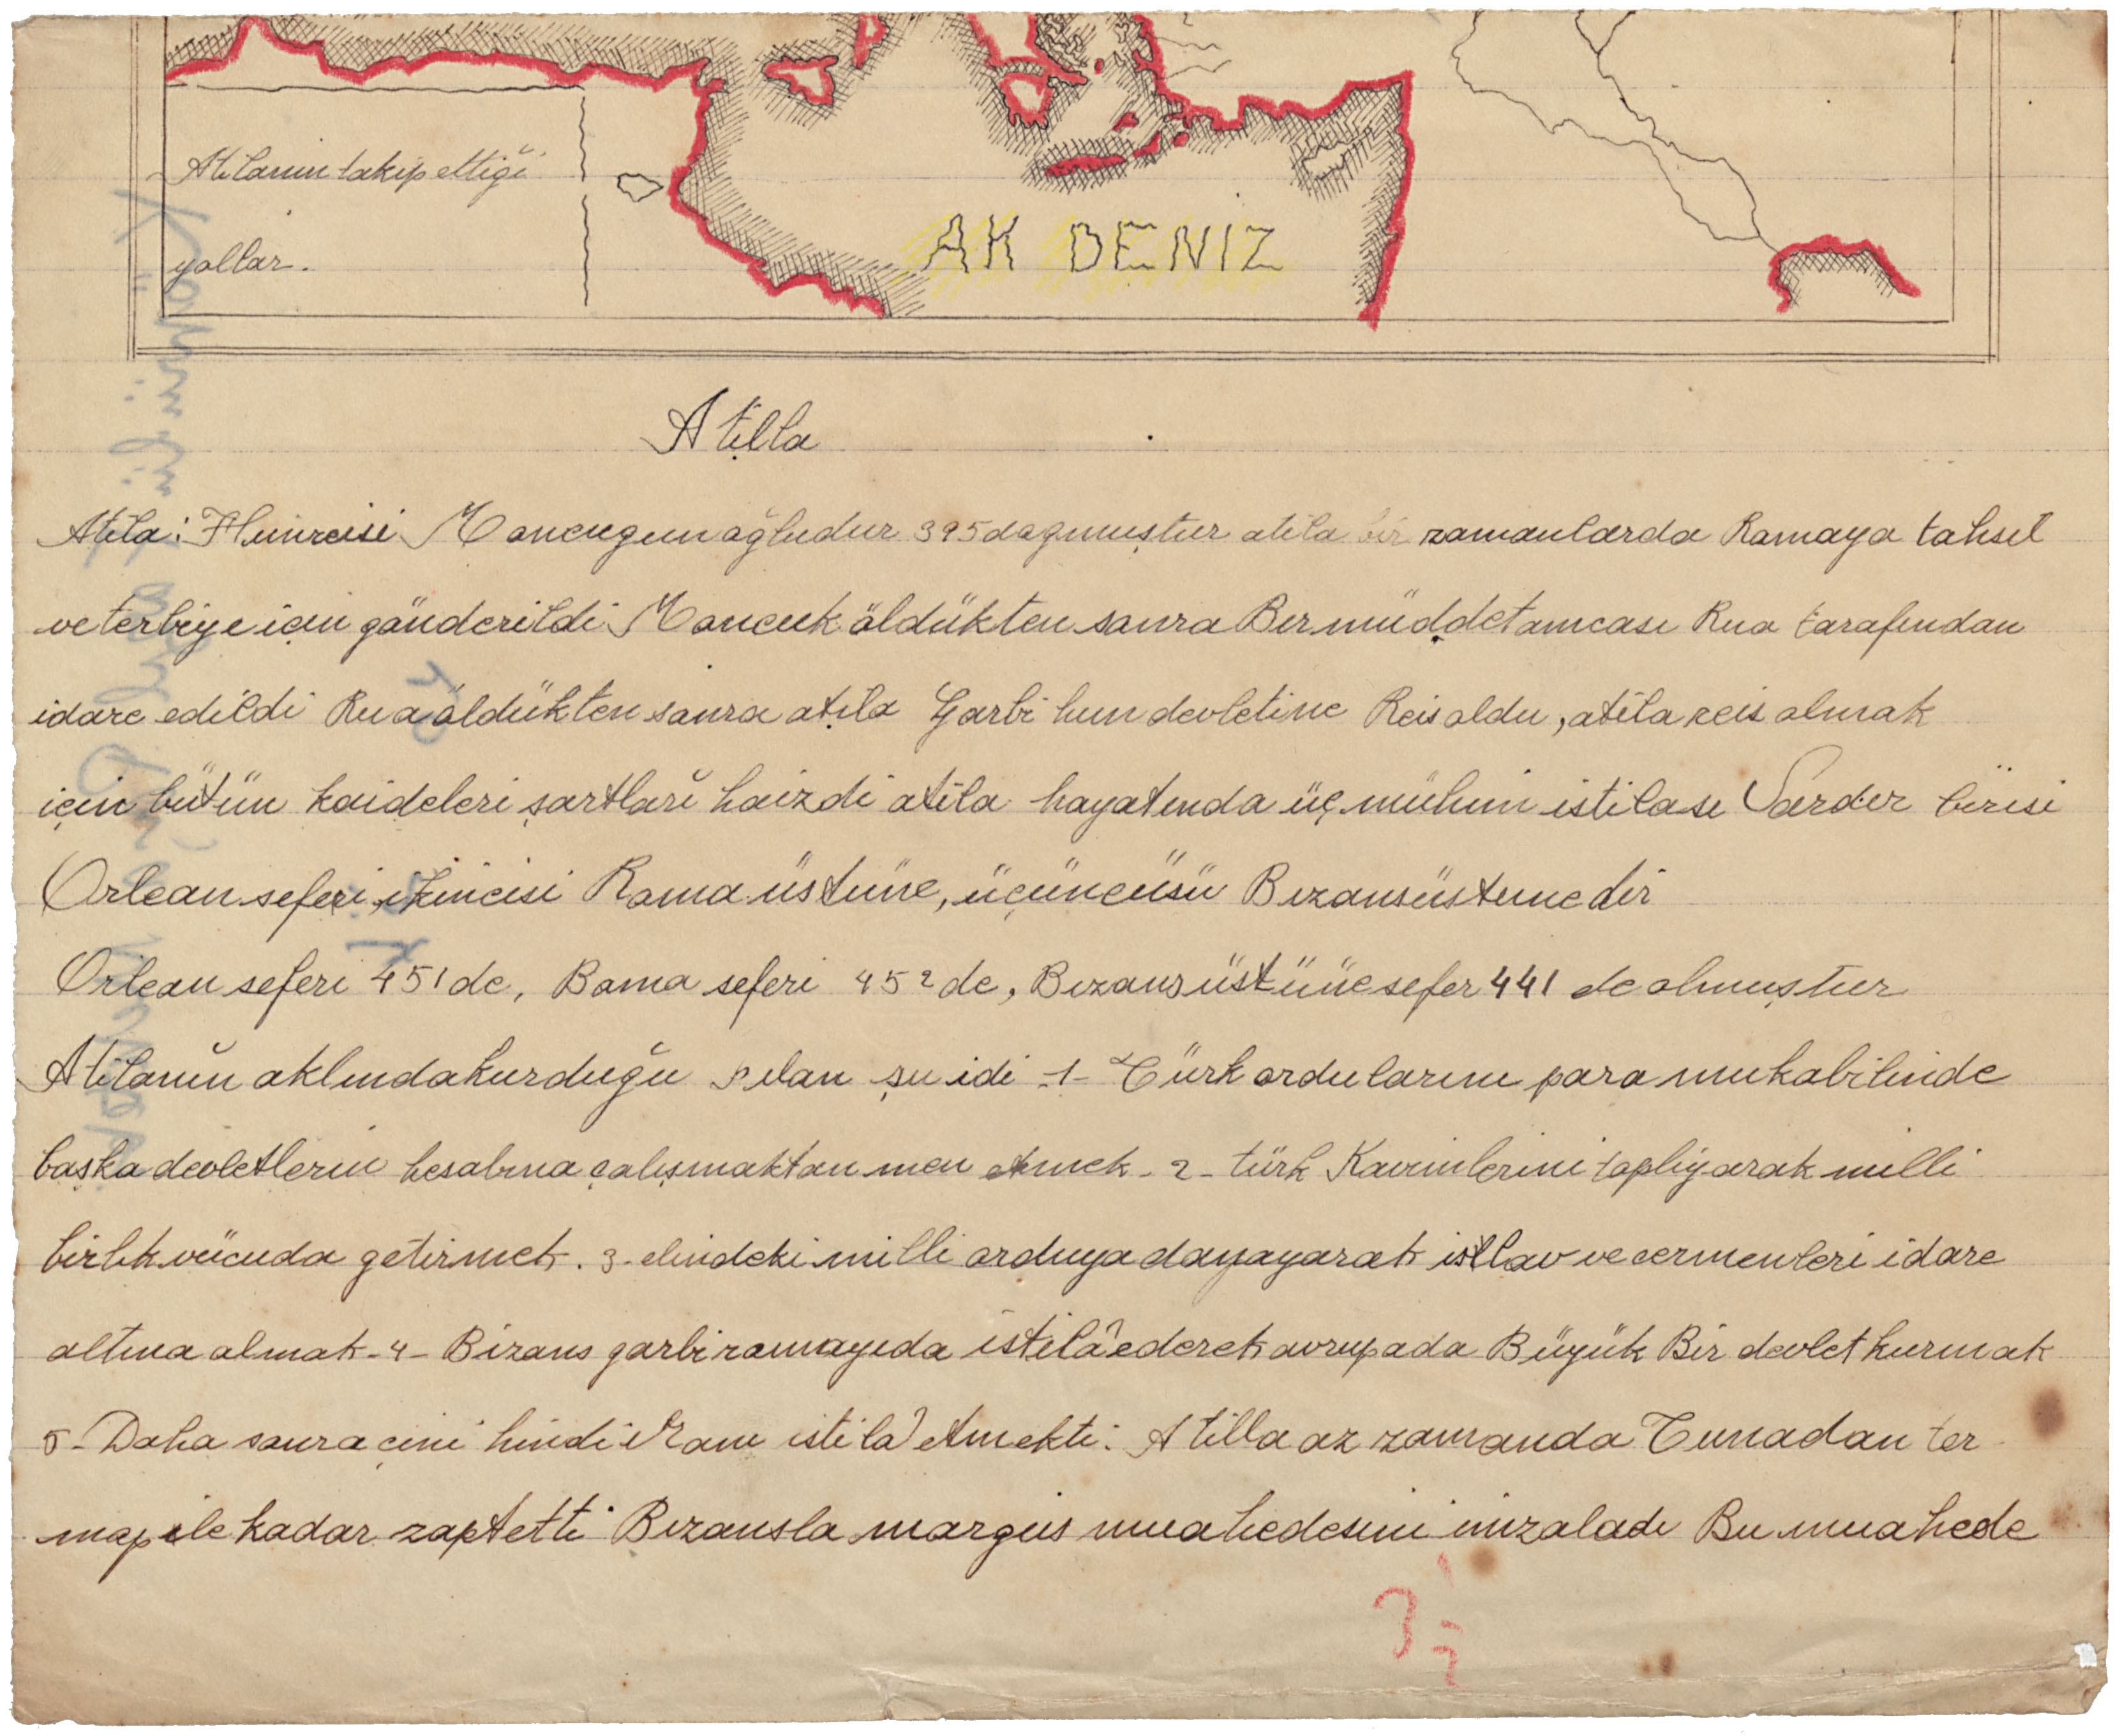 Atilanın takip ettiği
yollar.
AK DENİZ
Atilla
Atila: Hun reisi Moncugun oğludur 395 dogmuştur atila bir zamanlarda Romaya tahsil
ve terbiye için gönderildi Moncuk öldükten sonra Bir müddet amcası Rua tarafından
idare edildi Rua öldükten sonra atila Garbi hun devletine Reis oldu, atila reis olmak
için bütün kaideleri şartları haizdi atila hayatında üç mühim istilası Vardır birisi
Orlean seferi, ikincisi Roma üstüne, üçüncüsü Bizans üstünedir
Orlean seferi 451 de, Roma seferi 452 de, Bizans üstüne sefer 441 de olmuştur
Atilanın aklında kurduğu pılan şu idi -1- Türk ordularını para mukabilinde
başka devletlerin hesabına çalışmaktan men etmek - 2 - türk Kavimlerini toplıyarak milli
birlik vücuda getirmek. 3- elindeki milli orduya dayayarak istlav ve cermenleri idare
altına almak - 4 - Bizans garbi romayıda istilâ ederek avrupada Büyük Bir devlet kurmak
5 - Daha sonra çini hindi iranı istilâ etmekti. Atilla az zamanda Tunadan ter
mopile kadar zaptetti Bizansla margus muahedesini imzaladı Bu muahede